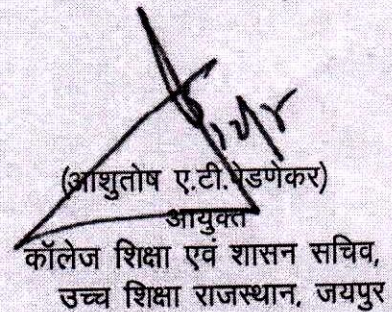 (आशुतोष ए.टी.पेडणेकर)
आयुक्त
कॉलेज शिक्षा एवं शासन सचिव,
उच्च शिक्षा राजस्थान, जयपुर